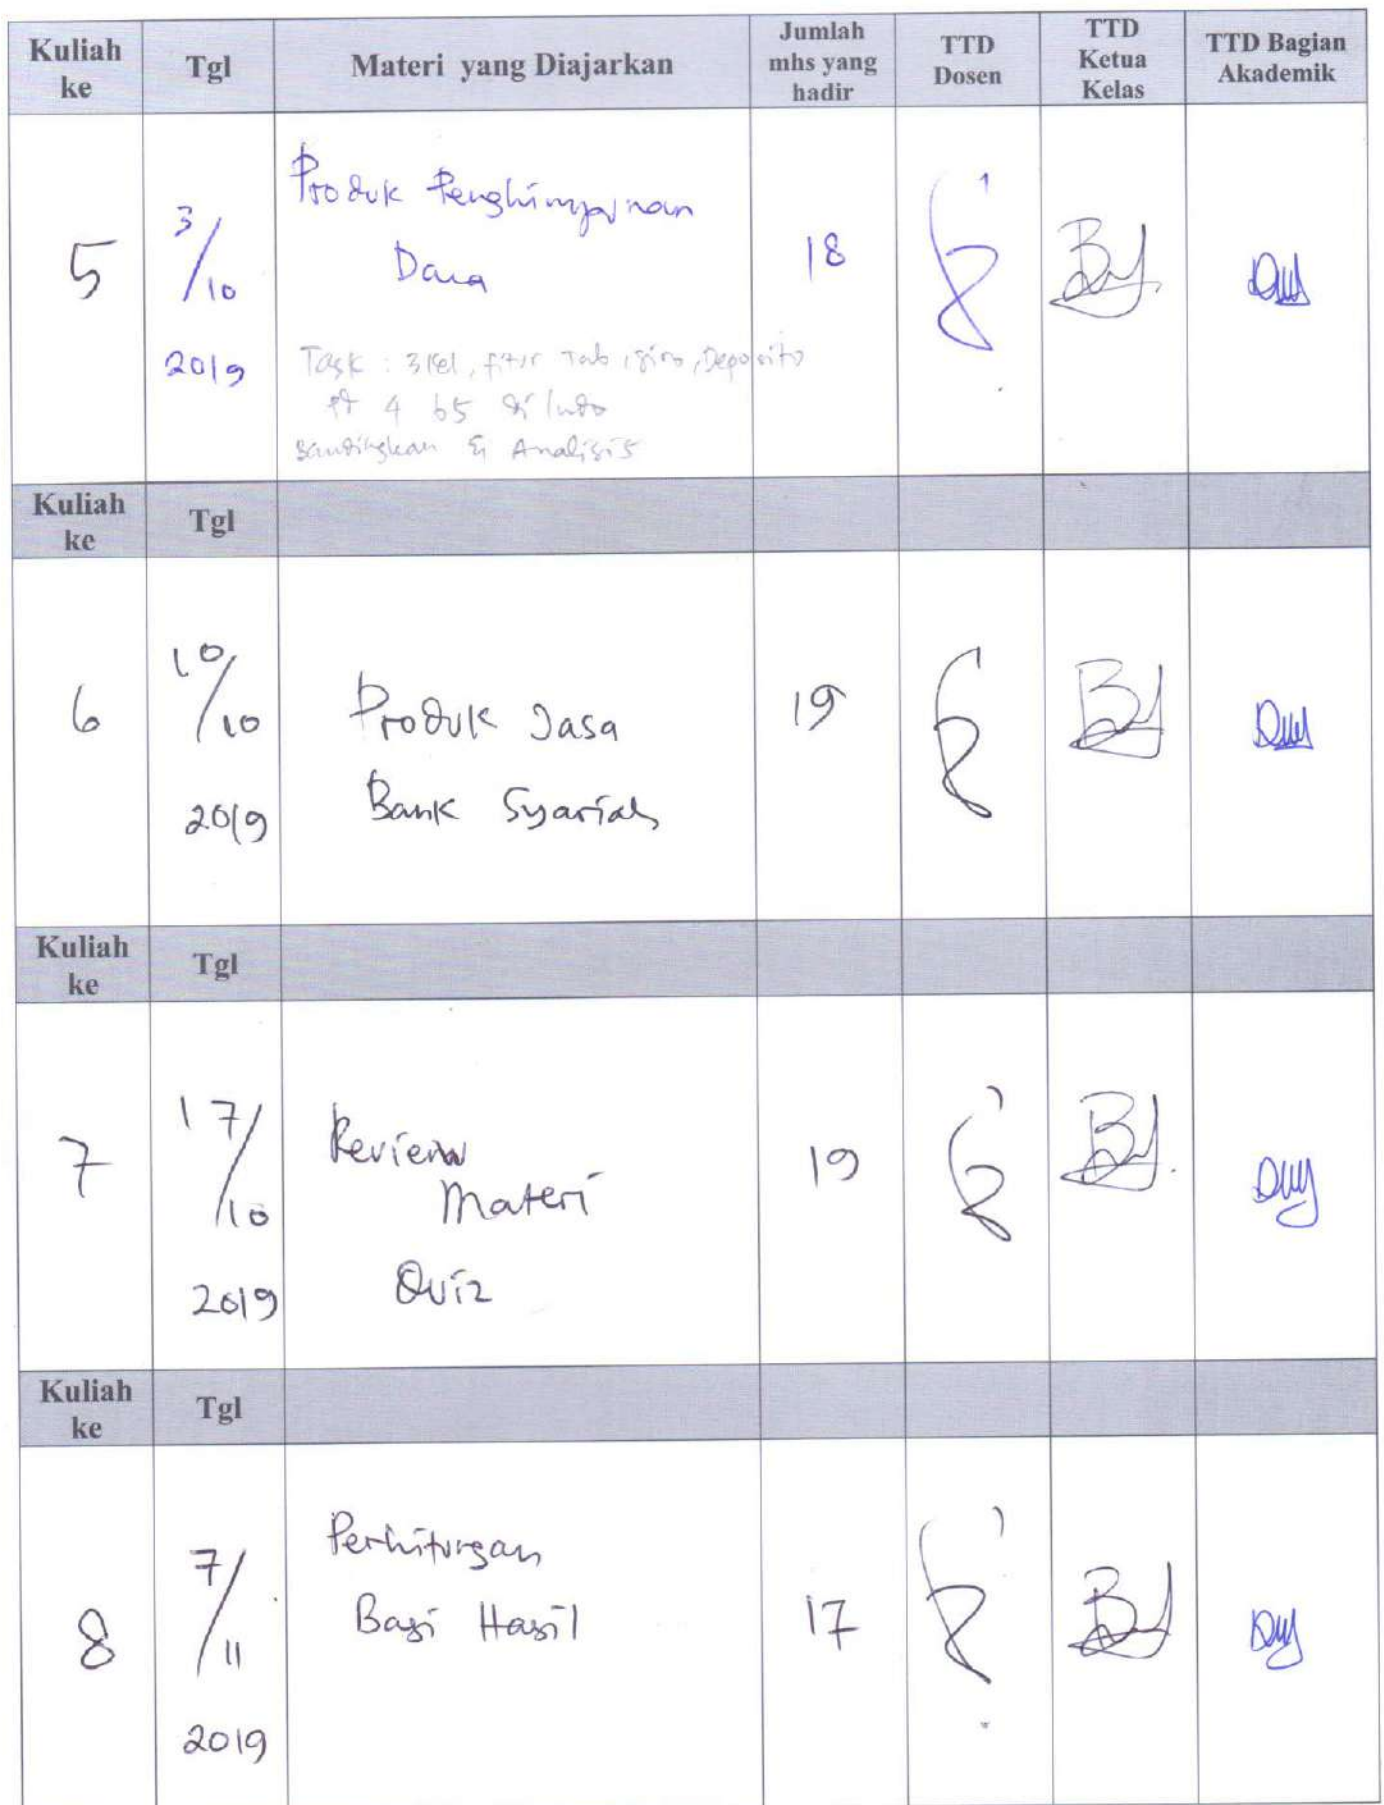 Kuliah ke Tgl Materi yang Diajarkan Jumlah mhs yang hadir TTD Dosen TTD Ketua Kelas TTD Bagian Akademik
5 3/10 2019 18
Produk Penghimpunan
Dana
Task : 3 kel, fitur Tab, giro, Deposito
4 bs di Indo
Bandingkan & Analisis
Kuliah ke Tgl
6 10/10 2019 19
Produk Jasa
Bank Syariah
Kuliah ke Tgl
7 17/10 2019 19
Review
Materi
Quiz
Kuliah ke Tgl
8 7/11 2019 17
Perhitungan
Bagi Hasil